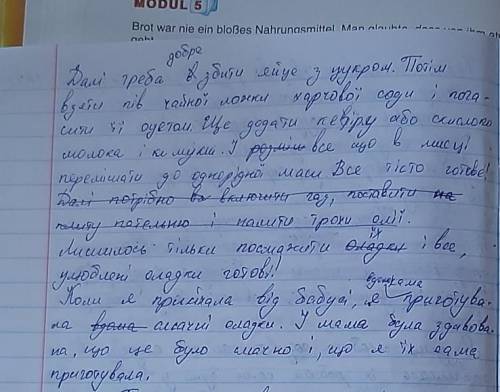 MODUL 5
Brot war nie ein bloßes Nahrungsmittel. Man glaubte, dass von ihm
geht
добре
Далі треба взбити яйце з цукром. Потім
взяти пів чайної ложки харчової соди і пога-
сити її оцетом. Ще додати кефіру або скислого
молока і кг муки. І розміш все що в мисці
перемішати до однорідної маси Все тісто готове!
Далі потрібно вк включити газ, поставити на
плиту пательню і налити трохи олії.
їх
Лишилось тільки посмажити оладки і все,
улюблені оладки готові!
Коли я приїхала від бабусі, я вдома приготува-
ла вдома смачні оладки. І мама була здивова-
на, що це було смачно і, що я їх сама
приготувала.